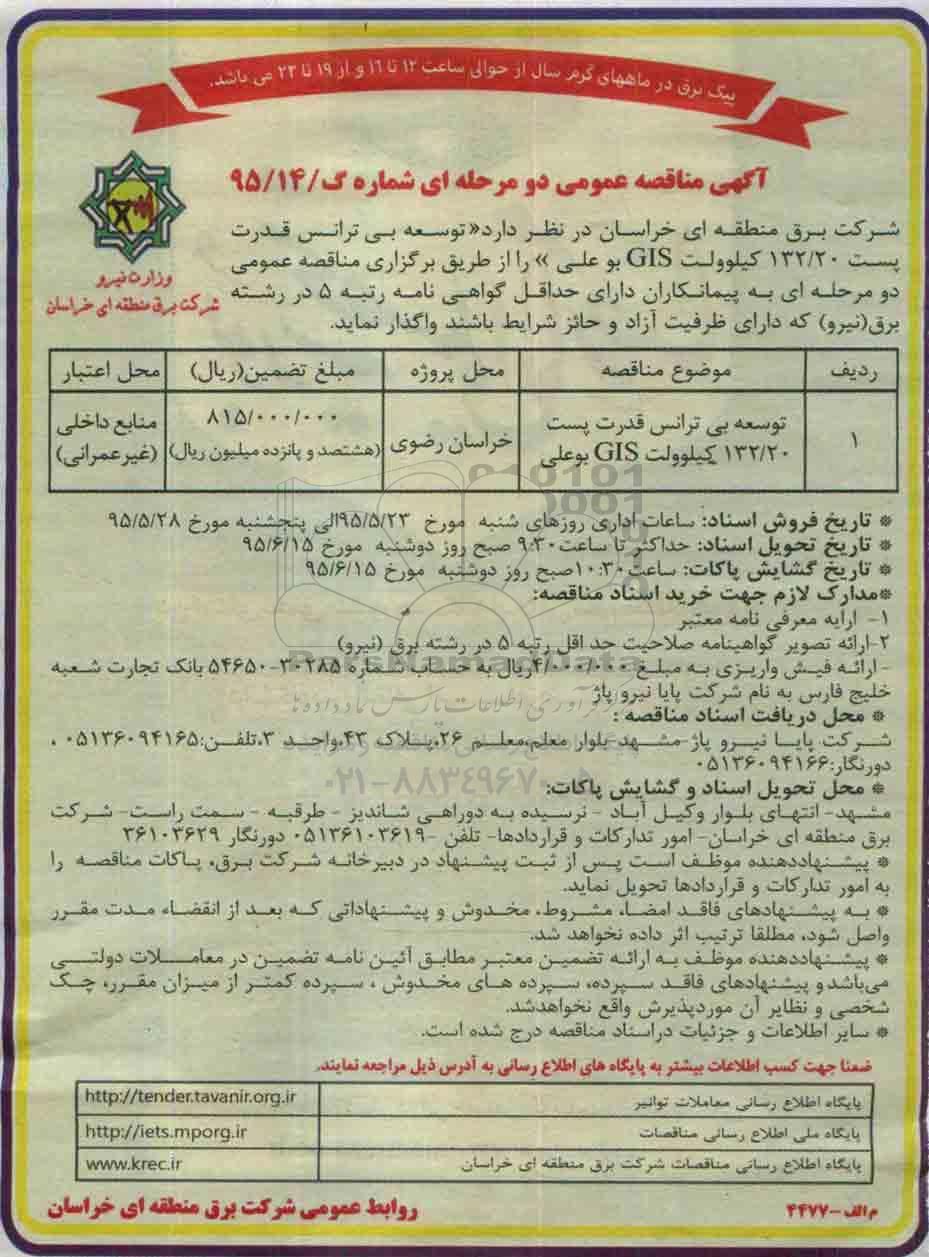 پیک برق در ماههای گرم سال از حوالی ساعت ۱۲ تا ۱۶ و از ۱۹ تا ۲۳ می باشد.
آگهی مناقصه عمومی دو مرحله ای شماره گ/۹۵/۱۴
وزارت نیرو
شرکت برق منطقه ای خراسان
شرکت برق منطقه ای خراسان در نظر دارد« توسعه بی ترانس قدرت
پست ۱۳۲/۲۰ کیلوولت GIS بو علی » را از طریق برگزاری مناقصه عمومی
دو مرحله ای به پیمانکاران دارای حداقل گواهی نامه رتبه ۵ در رشته
برق(نیرو) که دارای ظرفیت آزاد و حائز شرایط باشند واگذار نماید.
ردیف موضوع مناقصه محل پروژه مبلغ تضمین(ریال) محل اعتبار
۱ توسعه بی ترانس قدرت پست ۱۳۲/۲۰ کیلوولت GIS بوعلی خراسان رضوی ۸۱۵/۰۰۰/۰۰۰ (هشتصد و پانزده میلیون ریال) منابع داخلی (غیرعمرانی)
* تاریخ فروش اسناد: ساعات اداری روزهای شنبه مورخ ۹۵/۵/۲۳الی پنجشنبه مورخ ۹۵/۵/۲۸
* تاریخ تحویل اسناد: حداکثر تا ساعت۹:۳۰ صبح روز دوشنبه مورخ ۹۵/۶/۱۵
* تاریخ گشایش پاکات: ساعت۱۰:۳۰صبح روز دوشنبه مورخ ۹۵/۶/۱۵
*مدارک لازم جهت خرید اسناد مناقصه:
۱- ارایه معرفی نامه معتبر
۲-ارائه تصویر گواهینامه صلاحیت حد اقل رتبه ۵ در رشته برق (نیرو)
- ارائه فیش واریزی به مبلغ ۴/۰۰۰/۰۰۰ریال به حساب شماره ۳۰۲۸۵-۵۴۶۵۰ بانک تجارت شعبه
خلیج فارس به نام شرکت پایا نیرو پاژ
* محل دریافت اسناد مناقصه :
شرکت پایا نیرو پاژ-مشهد-بلوار معلم،معلم ۲۶،پلاک ۴۳،واحد ۳،تلفن:۰۵۱۳۶۰۹۴۱۶۵ ،
دورنگار:۰۵۱۳۶۰۹۴۱۶۶
* محل تحویل اسناد و گشایش پاکات:
مشهد- انتهای بلوار وکیل آباد - نرسیده به دوراهی شاندیز - طرقبه - سمت راست- شرکت
برق منطقه ای خراسان- امور تدارکات و قراردادها- تلفن -۰۵۱۳۶۱۰۳۶۱۹ دورنگار ۳۶۱۰۳۶۲۹
* پیشنهاددهنده موظف است پس از ثبت پیشنهاد در دبیرخانه شرکت برق، پاکات مناقصه را
به امور تدارکات و قراردادها تحویل نماید.
* به پیشنهادهای فاقد امضا، مشروط، مخدوش و پیشنهاداتی که بعد از انقضاء مدت مقرر
واصل شود، مطلقا ترتیب اثر داده نخواهد شد.
* پیشنهاددهنده موظف به ارائه تضمین معتبر مطابق آئین نامه تضمین در معاملات دولتی
می‌باشد و پیشنهادهای فاقد سپرده، سپرده های مخدوش ، سپرده کمتر از میزان مقرر، چک
شخصی و نظایر آن موردپذیرش واقع نخواهدشد.
* سایر اطلاعات و جزئیات دراسناد مناقصه درج شده است.
ضمنا جهت کسب اطلاعات بیشتر به پایگاه های اطلاع رسانی به آدرس ذیل مراجعه نمایند.
پایگاه اطلاع رسانی معاملات توانیر http://tender.tavanir.org.ir
پایگاه ملی اطلاع رسانی مناقصات http://iets.mporg.ir
پایگاه اطلاع رسانی مناقصات شرکت برق منطقه ای خراسان www.krec.ir
م الف-۴۴۷۷
روابط عمومی شرکت برق منطقه ای خراسان
۰۲۱-۸۸۳۴۹۶۷۰-۵